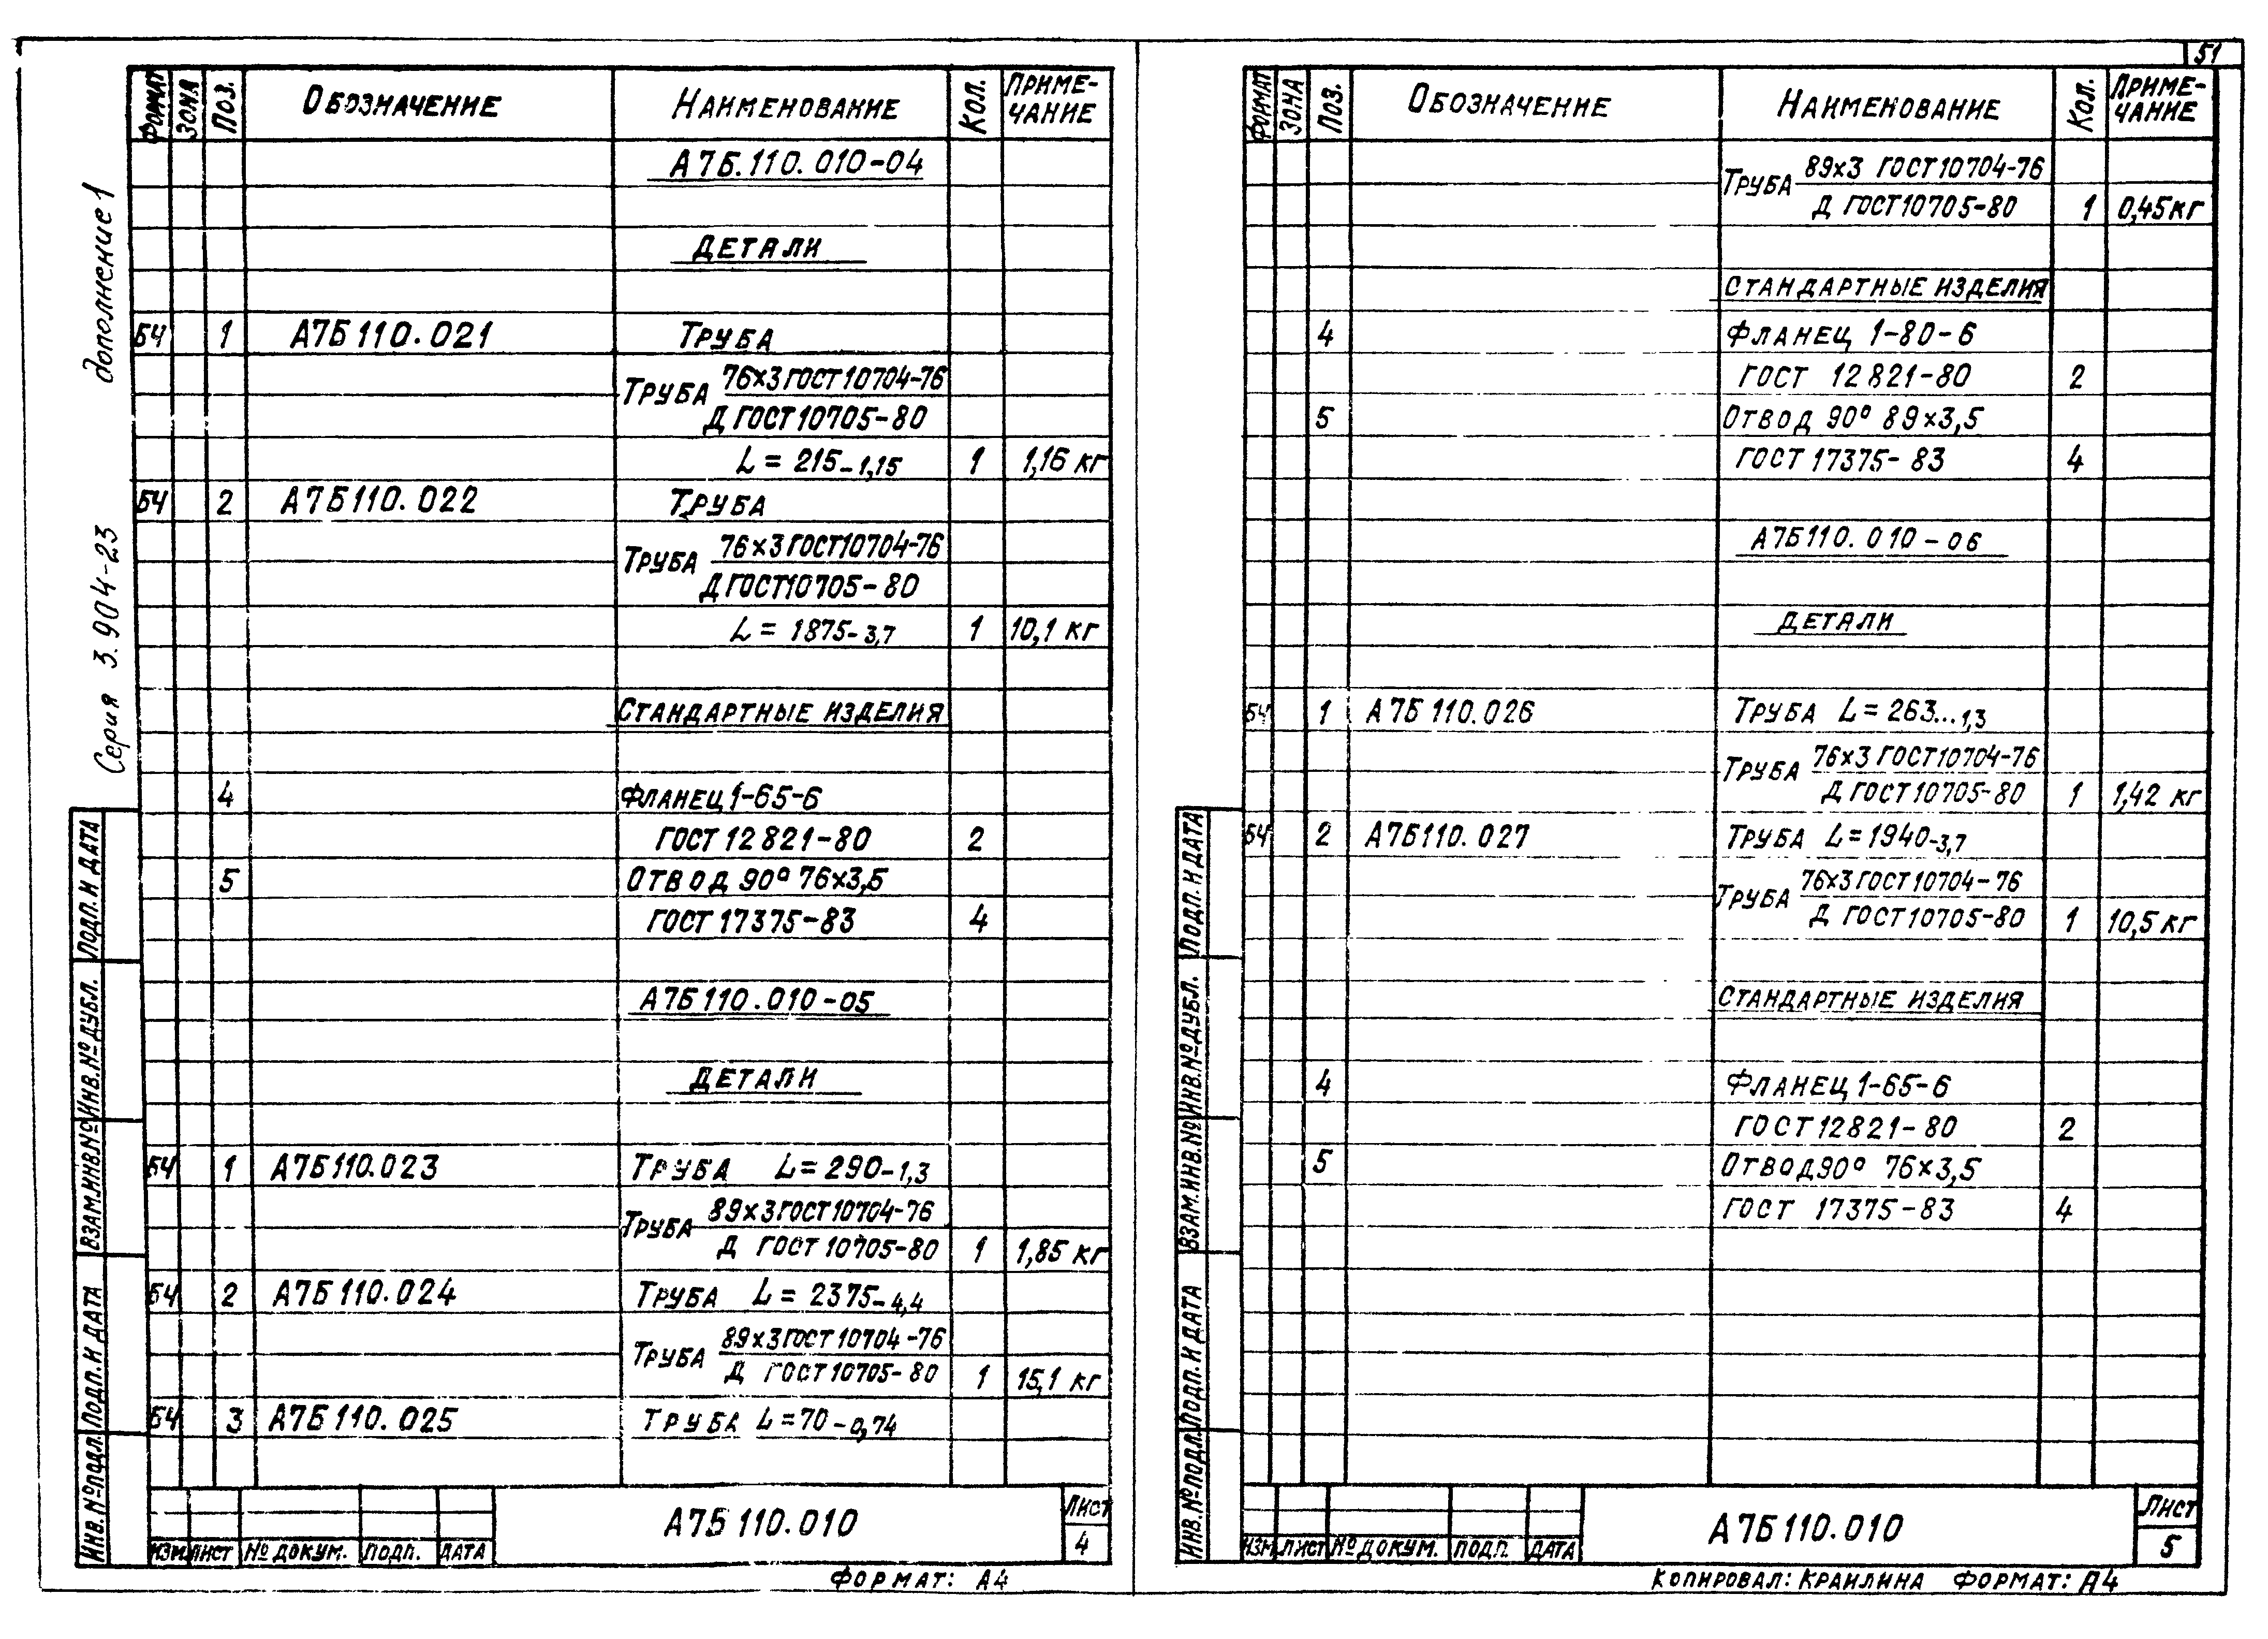 51
дополнение 1
Серия 3.904-23
ФОРМАТ ЗОНА ПОЗ. ОБОЗНАЧЕНИЕ НАИМЕНОВАНИЕ КОЛ. ПРИМЕ-
ЧАНИЕ
А7Б.110.010-04
ДЕТАЛИ
БЧ 1 А7Б110.021 ТРУБА
ТРУБА 76×3 ГОСТ 10704-76
Д ГОСТ 10705-80
L = 215-1,15 1 1,16 кг
БЧ 2 А7Б110.022 ТРУБА
ТРУБА 76×3 ГОСТ 10704-76
Д ГОСТ 10705-80
L = 1875-3,7 1 10,1 кг
СТАНДАРТНЫЕ ИЗДЕЛИЯ
4 ФЛАНЕЦ 1-65-6
ГОСТ 12821-80 2
5 ОТВОД 90° 76×3,5
ГОСТ 17375-83 4
А7Б110.010-05
ДЕТАЛИ
БЧ 1 А7Б110.023 ТРУБА L = 290-1,3
ТРУБА 89×3 ГОСТ 10704-76
Д ГОСТ 10705-80 1 1,85 кг
БЧ 2 А7Б110.024 ТРУБА L = 2375-4,4
ТРУБА 89×3 ГОСТ 10704-76
Д ГОСТ 10705-80 1 15,1 кг
БЧ 3 А7Б110.025 ТРУБА L = 70-0,74
ПОДП. И ДАТА
ИНВ. № ДУБЛ.
ВЗАМ. ИНВ. №
ПОДП. И ДАТА
ИНВ. № ПОДЛ.
ИЗМ. ЛИСТ № ДОКУМ. ПОДП. ДАТА
А7Б110.010
ЛИСТ
4
ФОРМАТ: А4
ФОРМАТ ЗОНА ПОЗ. ОБОЗНАЧЕНИЕ НАИМЕНОВАНИЕ КОЛ. ПРИМЕ-
ЧАНИЕ
ТРУБА 89×3 ГОСТ 10704-76
Д ГОСТ 10705-80 1 0,45 кг
СТАНДАРТНЫЕ ИЗДЕЛИЯ
4 ФЛАНЕЦ 1-80-6
ГОСТ 12821-80 2
5 ОТВОД 90° 89×3,5
ГОСТ 17375-83 4
А7Б110.010-06
ДЕТАЛИ
БЧ 1 А7Б110.026 ТРУБА L = 263...1,3
ТРУБА 76×3 ГОСТ 10704-76
Д ГОСТ 10705-80 1 1,42 кг
БЧ 2 А7Б110.027 ТРУБА L = 1940-3,7
ТРУБА 76×3 ГОСТ 10704-76
Д ГОСТ 10705-80 1 10,5 кг
СТАНДАРТНЫЕ ИЗДЕЛИЯ
4 ФЛАНЕЦ 1-65-6
ГОСТ 12821-80 2
5 ОТВОД 90° 76×3,5
ГОСТ 17375-83 4
ПОДП. И ДАТА
ИНВ. № ДУБЛ.
ВЗАМ. ИНВ. №
ПОДП. И ДАТА
ИНВ. № ПОДЛ.
ИЗМ ЛИСТ № ДОКУМ. ПОДП. ДАТА
А7Б110.010
ЛИСТ
5
КОПИРОВАЛ: КРАИЛИНА ФОРМАТ: А4